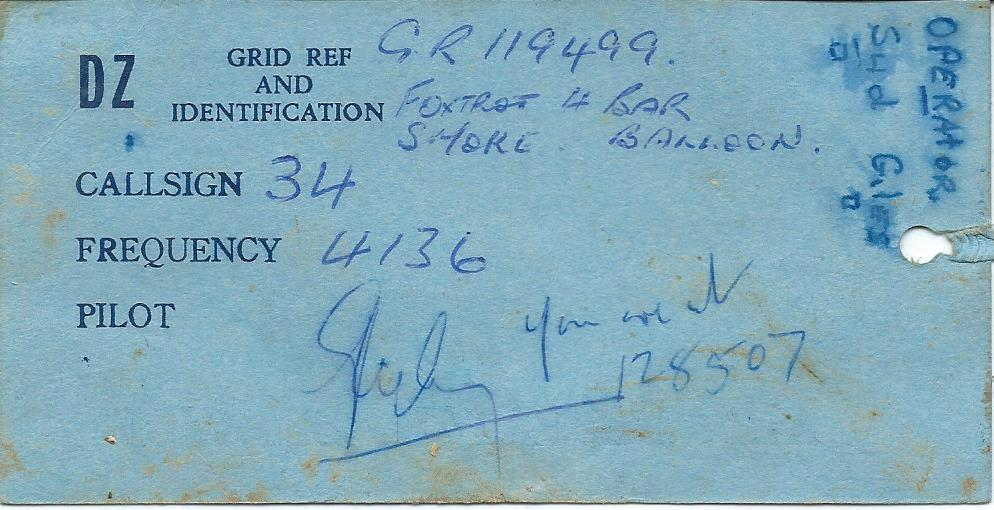 DZ
GRID REF
AND
IDENTIFICATION
GR 119499.
FOXTROT 4 BAR
SMOKE. BALLOON.
CALLSIGN 34
FREQUENCY 4136
PILOT
You are at
128507
OPERATOR
Syd Giles